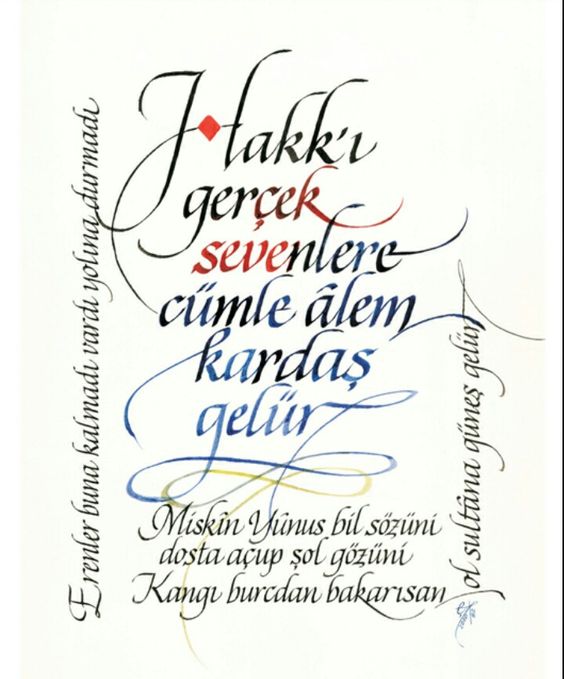 Hakk'ı
gerçek
sevenlere
cümle âlem
kardaş
gelür
Erenler buna kalmadı vardı yolına durmadı
Miskîn Yûnus bil sözüni
dosta açup şol gözüni
Kangı burcdan bakarısan
ol sultâna güneş gelür